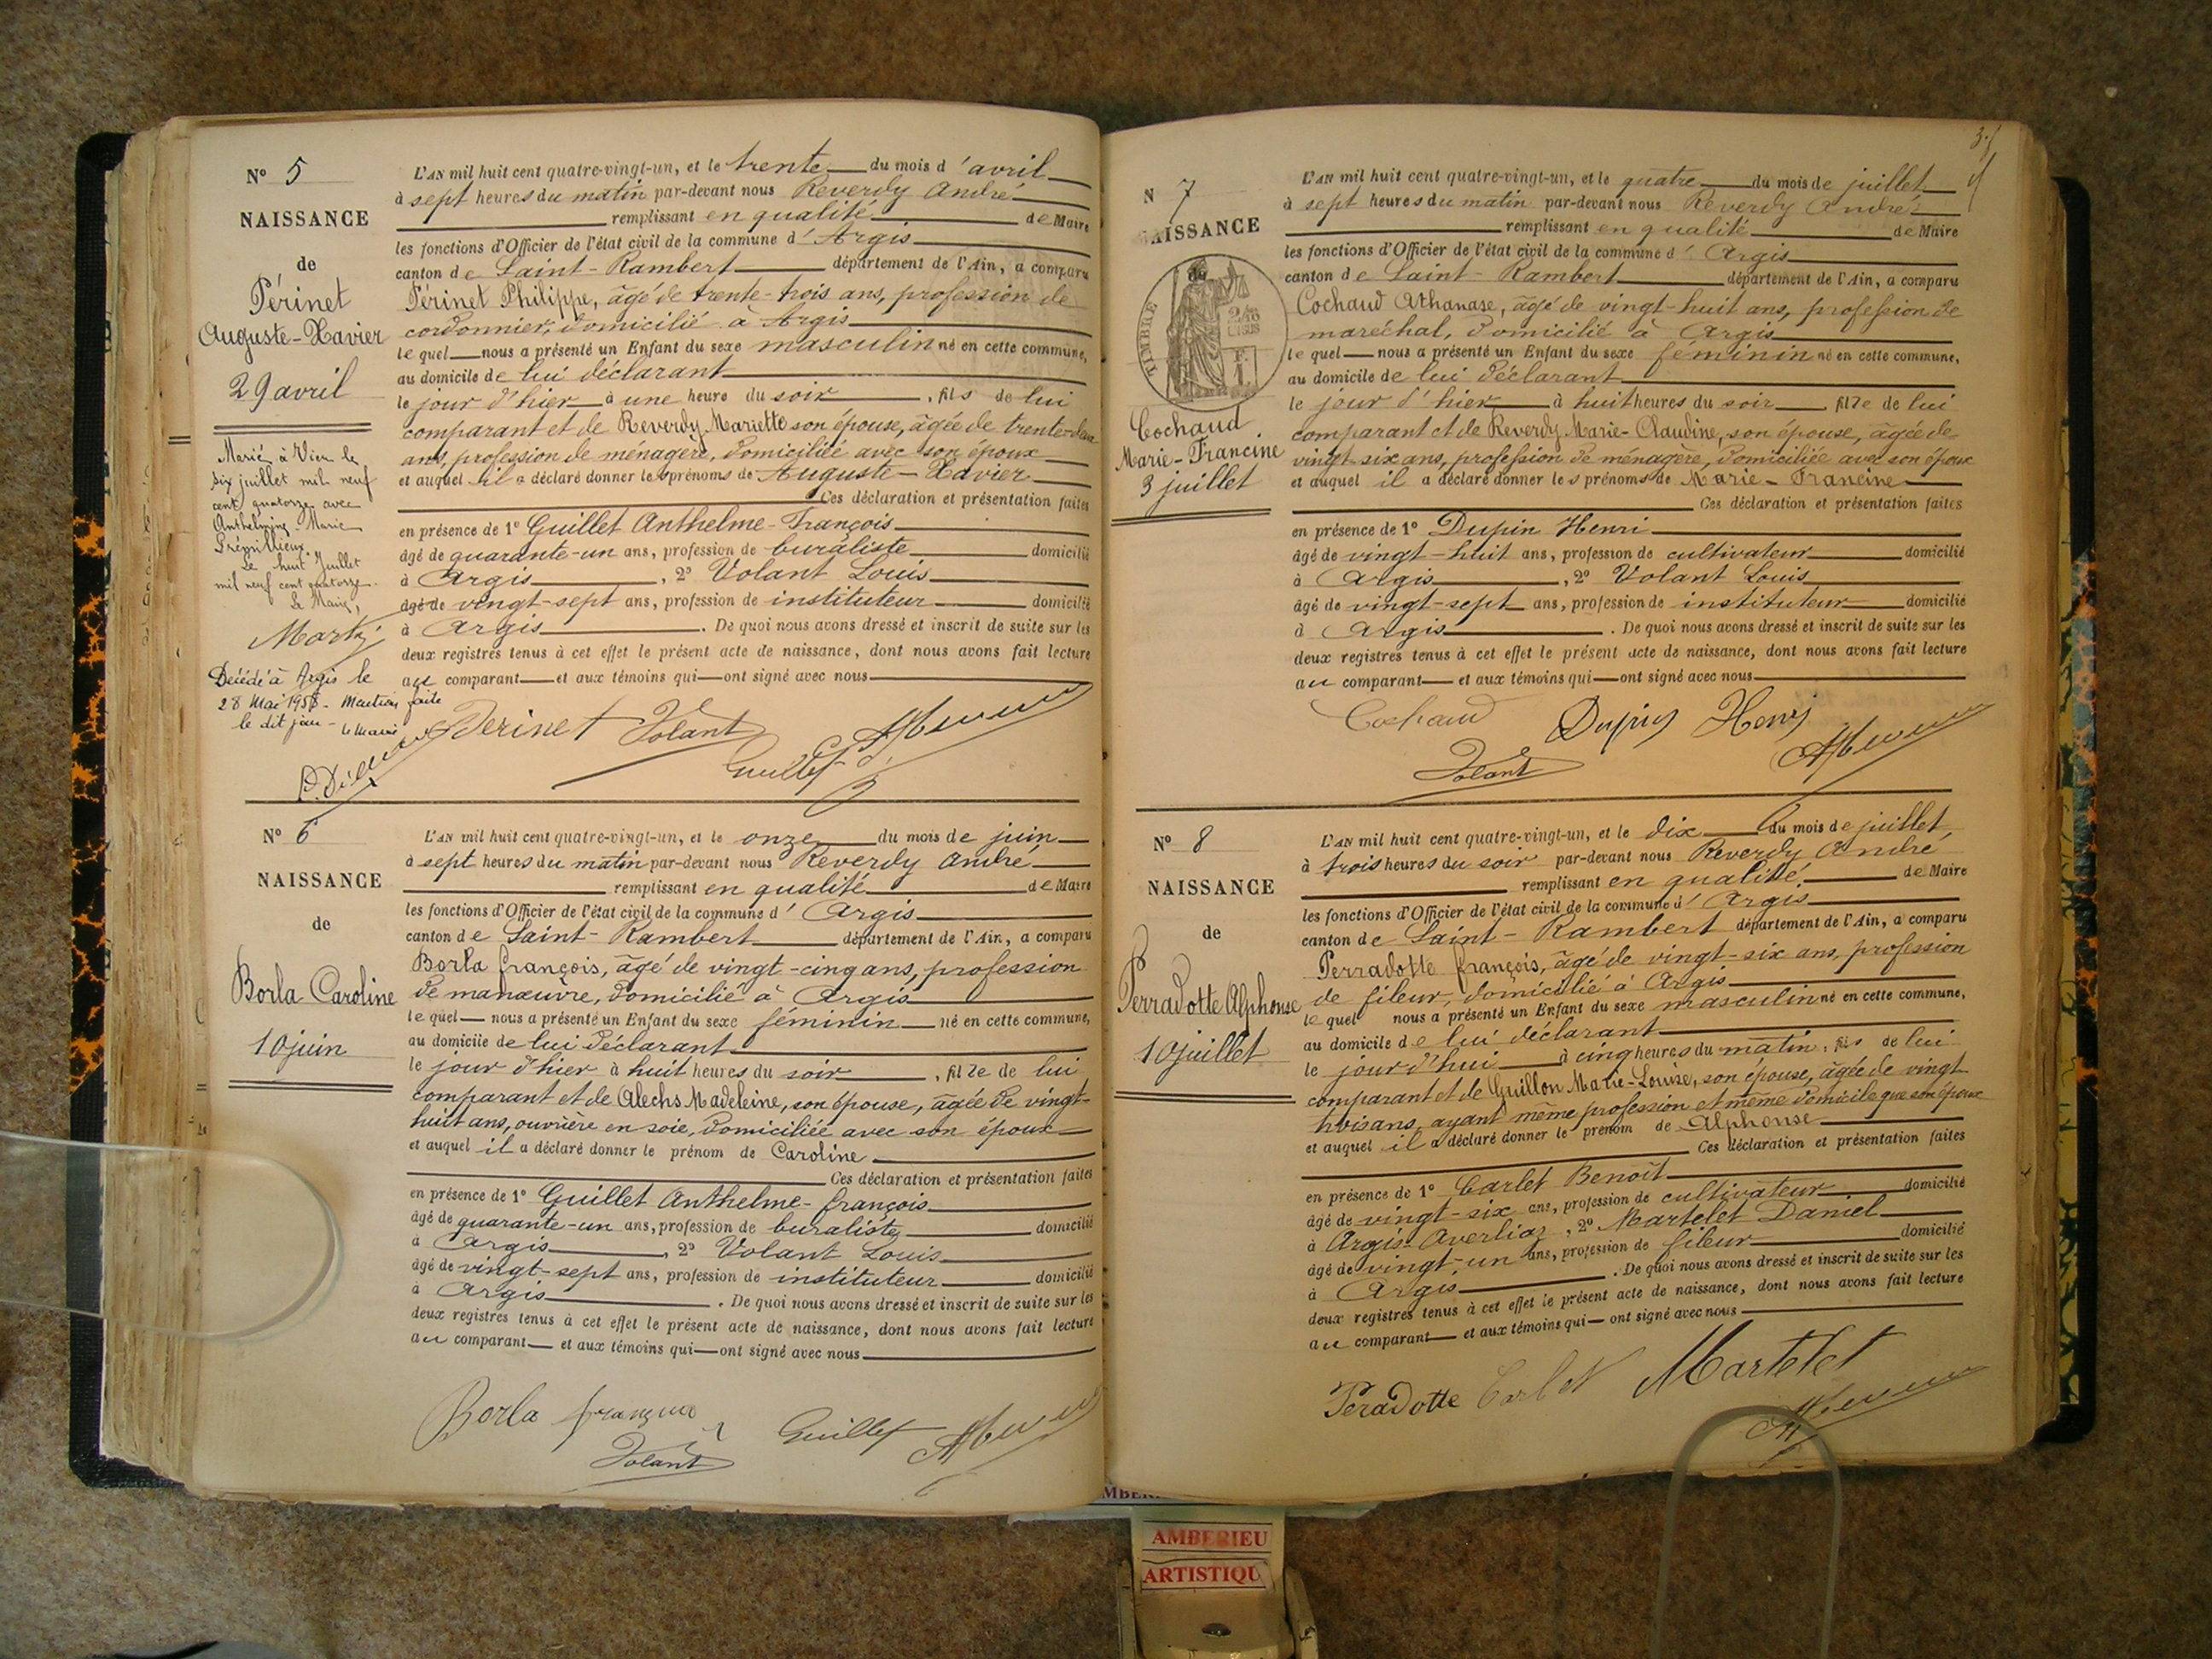 Nº 5
NAISSANCE
de
Périnet
Auguste-Xavier
29 avril
Marié à Vieu le
six juillet mil neuf
cent quatorze avec
Anthelmine-Marie
Le huit Juillet
mil neuf cent quatorze
Le Maire,
Décédé à Argis le
28 Mai - Mention faite
le dit jour - le Maire
L'AN mil huit cent quatre-vingt-un, et le trente du mois d'avril
à sept heures du matin par-devant nous Reverdy André
remplissant en qualité de Maire
les fonctions d'Officier de l'état civil de la commune d'Argis
canton de Saint-Rambert département de l'Ain, a comparu
Périnet Philippe, âgé de trente-trois ans, profession de
cordonnier, domicilié à Argis
le quel nous a présenté un Enfant du sexe masculin né en cette commune,
au domicile de lui déclarant
le jour d'hier à une heure du soir, fils de lui
comparant et de Reverdy Mariette son épouse, âgée de trente-deux
ans, profession de ménagère, domiciliée avec son époux
et auquel il a déclaré donner les prénoms de Auguste-Xavier
Ces déclaration et présentation faites
en présence de 1º Guillet Anthelme-François
âgé de quarante-un ans, profession de buraliste domicilié
à Argis, 2º Volant Louis
âgé de vingt-sept ans, profession de instituteur domicilié
à Argis. De quoi nous avons dressé et inscrit de suite sur les
deux registres tenus à cet effet le présent acte de naissance, dont nous avons fait lecture
au comparant et aux témoins qui ont signé avec nous
Perinet Volant
Guillet
Nº 6
NAISSANCE
de
Borla Caroline
10 juin
L'AN mil huit cent quatre-vingt-un, et le onze du mois de juin
à sept heures du matin par-devant nous Reverdy André
remplissant en qualité de Maire
les fonctions d'Officier de l'état civil de la commune d'Argis
canton de Saint-Rambert département de l'Ain, a comparu
Borla françois, âgé de vingt-cinq ans, profession
de manœuvre, domicilié à Argis
le quel nous a présenté un Enfant du sexe féminin né en cette commune,
au domicile de lui déclarant
le jour d'hier à huit heures du soir, fille de lui
comparant et de Alechs Madeleine, son épouse, âgée de vingt-
huit ans, ouvrière en soie, domiciliée avec son époux
et auquel il a déclaré donner le prénom de Caroline
Ces déclaration et présentation faites
en présence de 1º Guillet Anthelme-françois
âgé de quarante-un ans, profession de buraliste domicilié
à Argis, 2º Volant Louis
âgé de vingt-sept ans, profession de instituteur domicilié
à Argis. De quoi nous avons dressé et inscrit de suite sur les
deux registres tenus à cet effet le présent acte de naissance, dont nous avons fait lecture
au comparant et aux témoins qui ont signé avec nous
Borla françois Guillet
Volant
N 7
NAISSANCE
de
TIMBRE
Cochaud
Marie-Francine
3 juillet
L'AN mil huit cent quatre-vingt-un, et le quatre du mois de juillet
à sept heures du matin par-devant nous Reverdy André
remplissant en qualité de Maire
les fonctions d'Officier de l'état civil de la commune d'Argis
canton de Saint-Rambert département de l'Ain, a comparu
Cochaud Athanase, âgé de vingt-huit ans, profession de
maréchal, domicilié à Argis
le quel nous a présenté un Enfant du sexe féminin né en cette commune,
au domicile de lui déclarant
le jour d'hier à huit heures du soir, fille de lui
comparant et de Reverdy Marie-Claudine, son épouse, âgée de
vingt-six ans, profession de ménagère, domiciliée avec son époux
et auquel il a déclaré donner les prénoms de Marie-Francine
Ces déclaration et présentation faites
en présence de 1º Dupin Henri
âgé de vingt-huit ans, profession de cultivateur domicilié
à Argis, 2º Volant Louis
âgé de vingt-sept ans, profession de instituteur domicilié
à Argis. De quoi nous avons dressé et inscrit de suite sur les
deux registres tenus à cet effet le présent acte de naissance, dont nous avons fait lecture
au comparant et aux témoins qui ont signé avec nous
Cochaud
Volant
Nº 8
NAISSANCE
de
Perradotte Alphonse
10 juillet
L'AN mil huit cent quatre-vingt-un, et le dix du mois de juillet
à trois heures du soir par-devant nous Reverdy André
remplissant en qualité de Maire
les fonctions d'Officier de l'état civil de la commune d'Argis
canton de Saint-Rambert département de l'Ain, a comparu
Perradotte françois, âgé de vingt-six ans, profession
de fileur, domicilié à Argis
le quel nous a présenté un Enfant du sexe masculin né en cette commune,
au domicile de lui déclarant
le jour d'hui à cinq heures du matin, fils de lui
comparant et de Guillon Marie-Louise, son épouse, âgée de vingt
trois ans, ayant même profession et même domicile que son époux
et auquel il a déclaré donner le prénom de Alphonse
Ces déclaration et présentation faites
en présence de 1º Carlet Benoît
âgé de vingt-six ans, profession de cultivateur domicilié
à Argis-Averliaz, 2º Martelet Daniel
âgé de vingt-un ans, profession de fileur domicilié
à Argis. De quoi nous avons dressé et inscrit de suite sur les
deux registres tenus à cet effet le présent acte de naissance, dont nous avons fait lecture
au comparant et aux témoins qui ont signé avec nous
Peradotte Carlet Martelet
AMBERIEU
ARTISTIQU